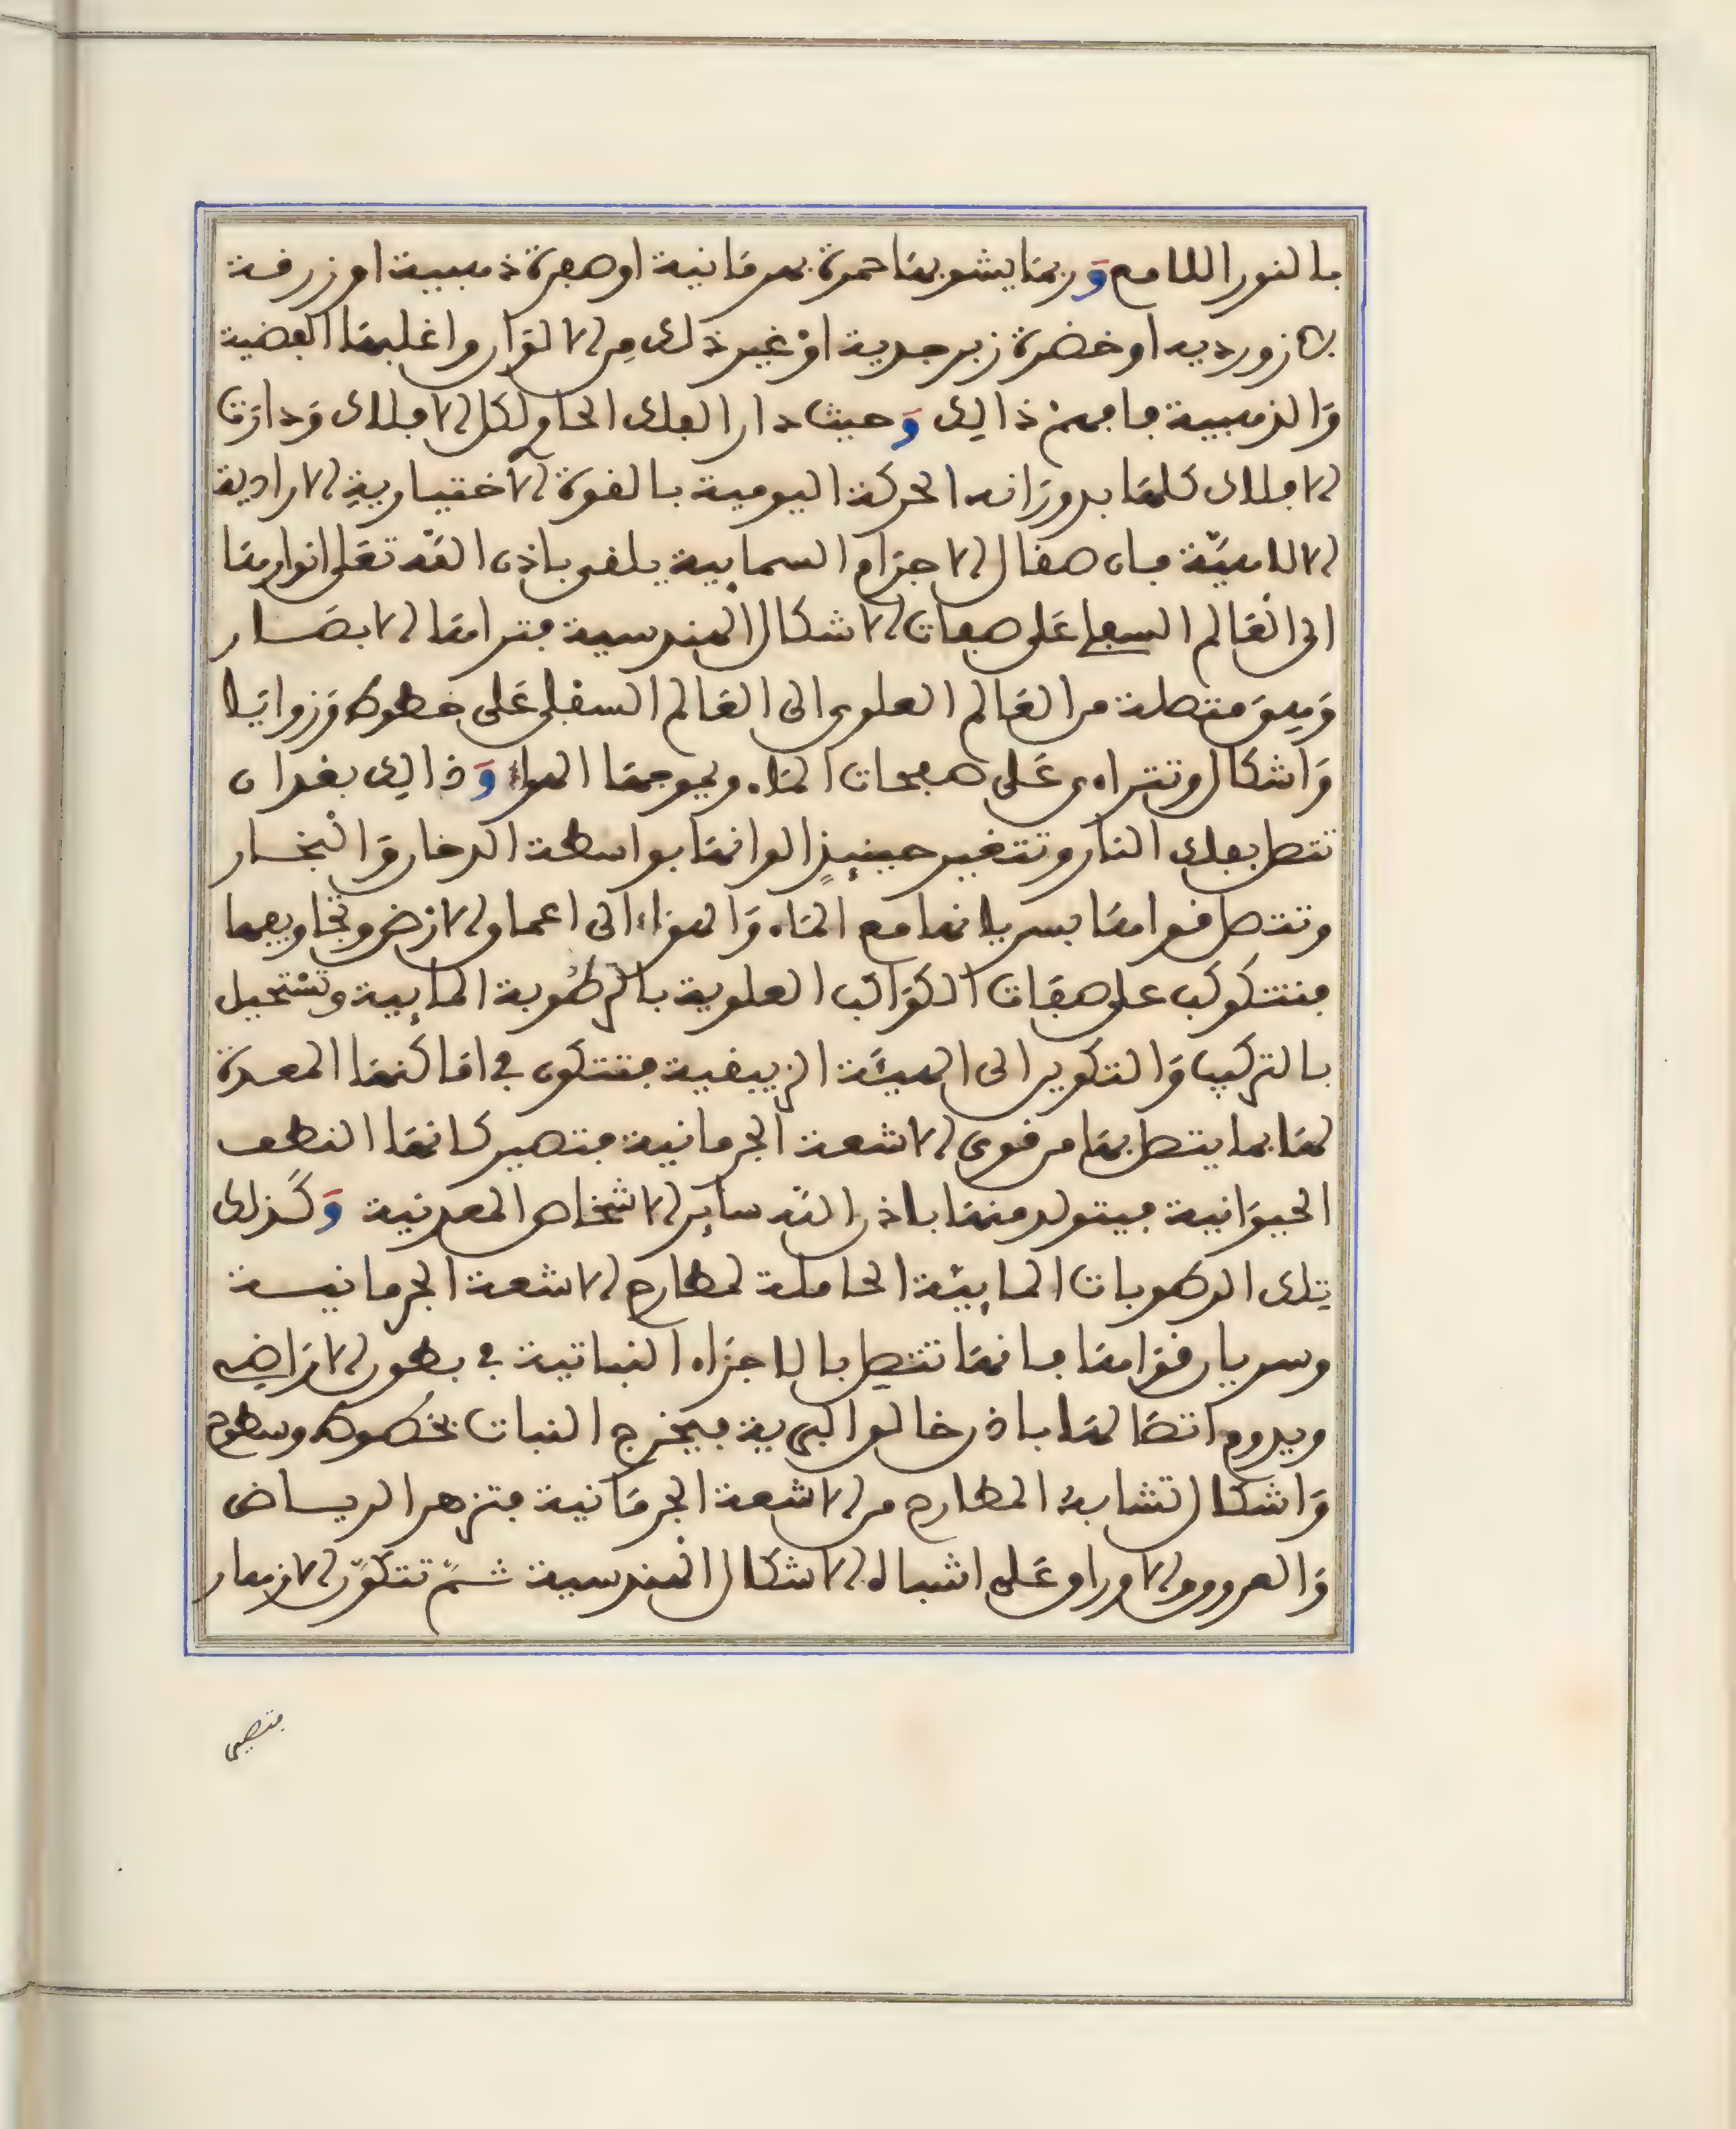 بالنور اللامع وربما يشوبها حمرة بهرمانية او صفرة ذهبية او زرقة
لازورديه او خضرة زبرجدية اوْ غير ذلك مِن الالوان واغلبها الفضية
وَالذهبية فافهمْ ذالِك وَحيث دار الفلك الحاوِ لكل الافلاك وَدارَت
الافلاك كلها بدورَانه الحركة اليومية بالقوة الاختياريةِ الارادية
الالاهيّة فان صقال الاجرَام السمابية يلقى باذن اللّه تعَلى انوارهَا
الى العَالم السفلى عَلى صفات الاشكال الهندسية فتراهَا الابصَار
وَهِىَ متصلة من العَالم العلوى الى العَالم السفلى عَلى خطوط وَزوايَا
وَاشكال وتتراءى عَلى صفحات المَاء ويموجهَا الهواء وَذالِك بعد ان
تتصل بفلك النار وتتغير حينيِذٍ الوانهَا بواسطة الدخان وَالْبخار
وتتصل قواهَا بسريانها مع المَاء وَالهوَاء الى اعماق الارْض وتجاويفها
فتتكوكب على صفات الكوَاكب العلوية بالرطُوبة المايِية وتسْتحيل
بالتركيب وَالتكوير الى الهيئَة الزييقية فتتكون في امَاكنهَا المعدة
لهَا بما يتصل بهَا من قوى الاشعة الجرمانية فتصير كانهَا النطف
الحيوَانية فيتولد منهَا باذن اللّه سايِر الاشخاص المعدنية وَكَذلك
تلك الرطوبات المايِيَة الحاملة لمطارح الاشعة الجرمانية
وسريان قوَاهَا فانهَا تتصِل بالاجزَاء النباتية في بطون الارَاضي
ويدوم اتصَالهَا باذن خالق البرية فيخرج النبات بخطوط وسطوح
وَاشكال تشابهُ المطارح من الاشعة الجرمَانية فتزهر الرياض
وَالعروق والاوراق عَلى اشباه الاشكال الهندسية ثمّ تتكوّن الازهار
فتصير